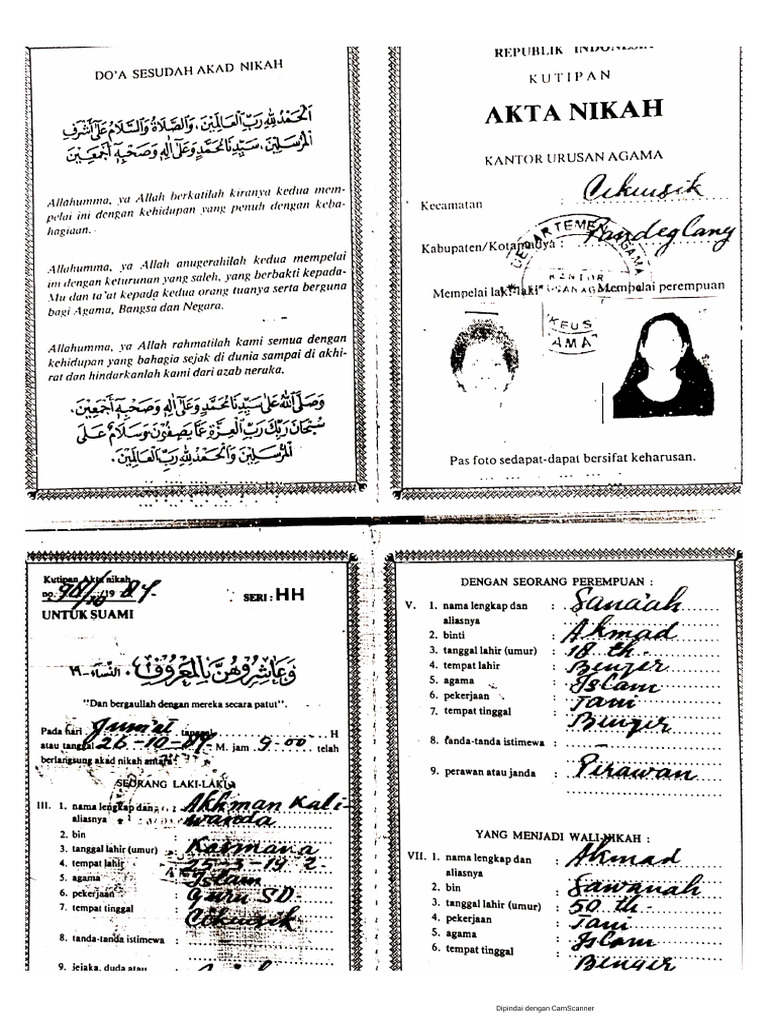 DO'A SESUDAH AKAD NIKAH
اَلْحَمْدُ لِلّٰهِ رَبِّ الْعَالَمِيْنَ، وَالصَّلَاةُ وَالسَّلَامُ عَلَى أَشْرَفِ
الْمُرْسَلِيْنَ، سَيِّدِنَا مُحَمَّدٍ وَعَلَى اٰلِهِ وَصَحْبِهِ أَجْمَعِيْنَ
Allahumma, ya Allah berkatilah kiranya kedua mem-
pelai ini dengan kehidupan yang penuh dengan keba-
hagiaan.
Allahumma, ya Allah anugerahilah kedua mempelai
ini dengan keturunan yang saleh, yang berbakti kepada-
Mu dan ta'at kepada kedua orang tuanya serta berguna
bagi Agama, Bangsa dan Negara.
Allahumma, ya Allah rahmatilah kami semua dengan
kehidupan yang bahagia sejak di dunia sampai di akhi-
rat dan hindarkanlah kami dari azab neraka.
وَصَلَّى اللّٰهُ عَلَى سَيِّدِنَا مُحَمَّدٍ وَعَلَى اٰلِهِ وَصَحْبِهِ أَجْمَعِيْنَ.
سُبْحَانَ رَبِّكَ رَبِّ الْعِزَّةِ عَمَّا يَصِفُوْنَ وَسَلَامٌ عَلَى
الْمُرْسَلِيْنَ وَالْحَمْدُ لِلّٰهِ رَبِّ الْعَالَمِيْنَ.
REPUBLIK INDONESIA
KUTIPAN
AKTA NIKAH
KANTOR URUSAN AGAMA
Kecamatan : Cikeusik
Kabupaten/Kotamadya : Pandeglang
DEPARTEMEN AGAMA
KANTOR
Mempelai laki-laki Mempelai perempuan
Pas foto sedapat-dapat bersifat keharusan.
Kutipan Akta nikah
no. /19 84.
SERI : HH
UNTUK SUAMI
وَعَاشِرُوْهُنَّ بِالْمَعْرُوْفِ . النساء - ١٩
"Dan bergaullah dengan mereka secara patut".
Pada hari Jum'at tanggal H
atau tanggal 26-10-84 M. jam 9-00 telah
berlangsung akad nikah antara :
SEORANG LAKI-LAKI
III. 1. nama lengkap dan : Akhman Kali-
aliasnya wanda
2. bin : Kasmana
3. tanggal lahir (umur) :
4. tempat lahir :
5. agama : Islam
6. pekerjaan : Guru SD.
7. tempat tinggal : Cikeusik
8. tanda-tanda istimewa :
9. jejaka, duda atau
DENGAN SEORANG PEREMPUAN :
V. 1. nama lengkap dan : Sana'ah
aliasnya
2. binti : Ahmad
3. tanggal lahir (umur) : 18 th.
4. tempat lahir : Binger
5. agama : Islam
6. pekerjaan : Tani
7. tempat tinggal : Binger
8. tanda-tanda istimewa :
9. perawan atau janda : Pirawan
YANG MENJADI WALI NIKAH :
VII. 1. nama lengkap dan : Ahmad
aliasnya
2. bin : Sawanah
3. tanggal lahir (umur) : 50 th.
4. pekerjaan : Tani
5. agama : Islam
6. tempat tinggal : Binger
Dipindai dengan CamScanner